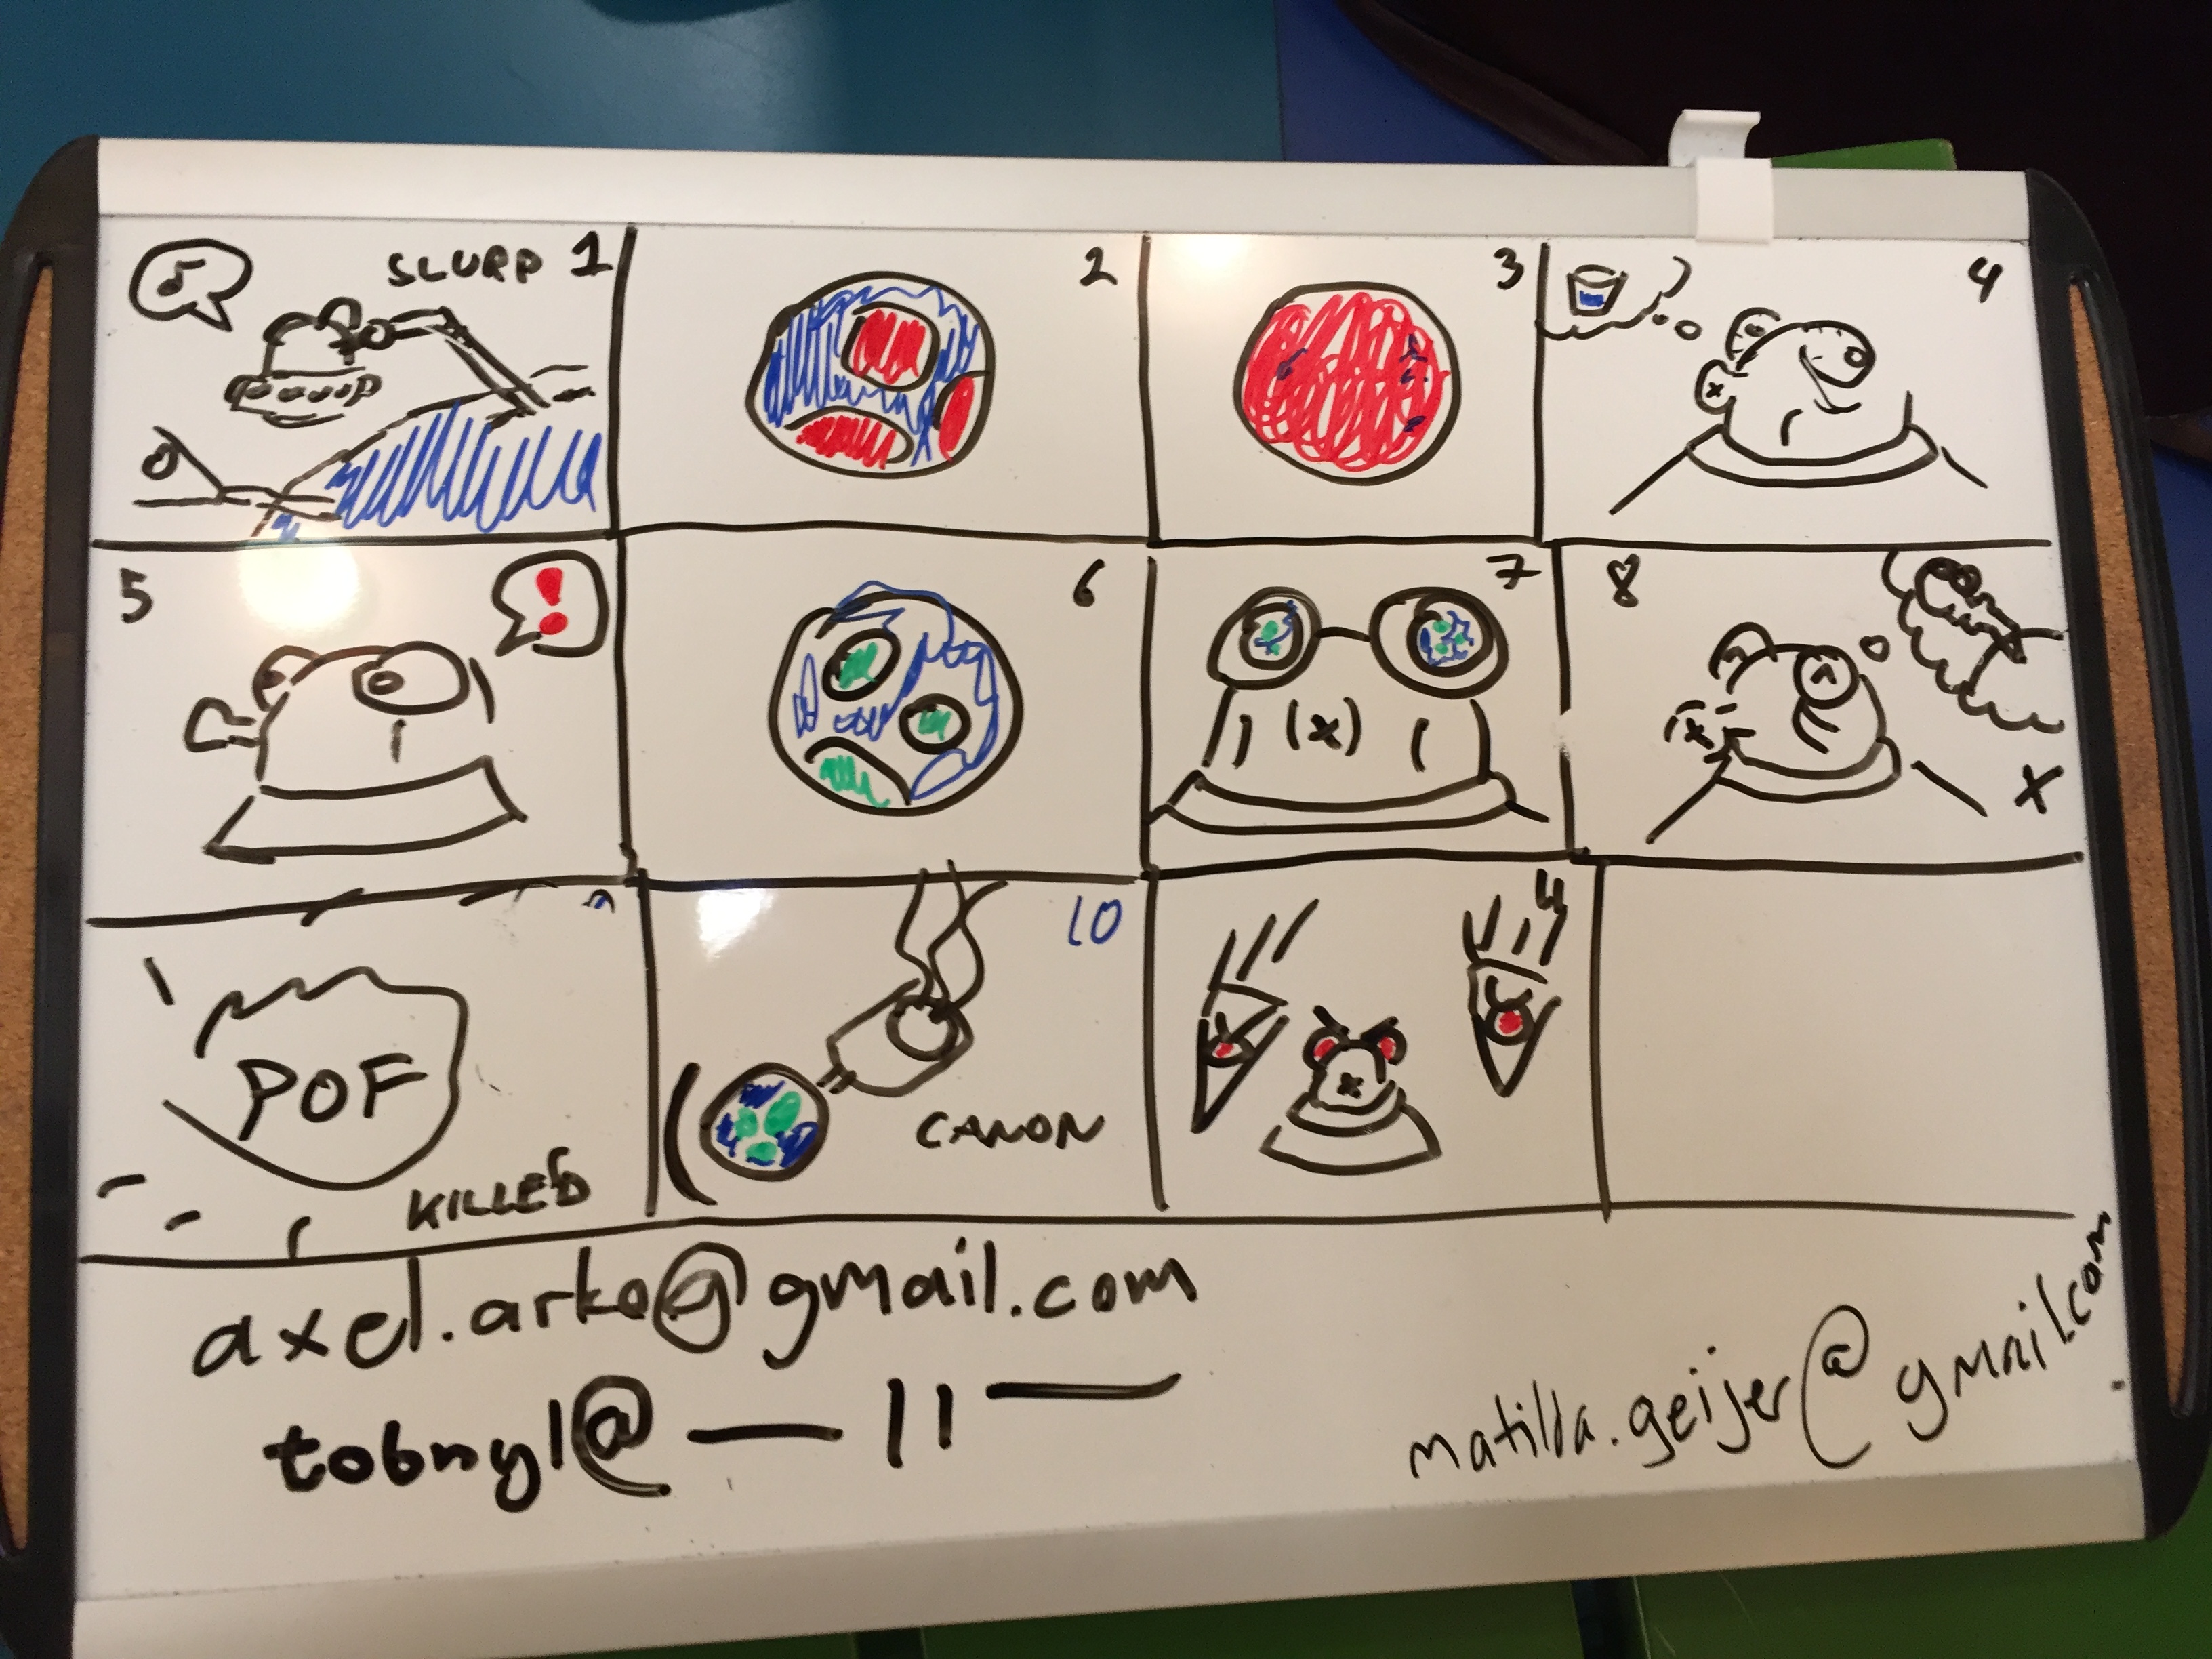 SLURP 1
2
3
4
5
6
7
8
POF
KILLED
10
CANON
axel.arko@gmail.com
tobnyl@ — 11 —
matilda.geijer@gmail.com